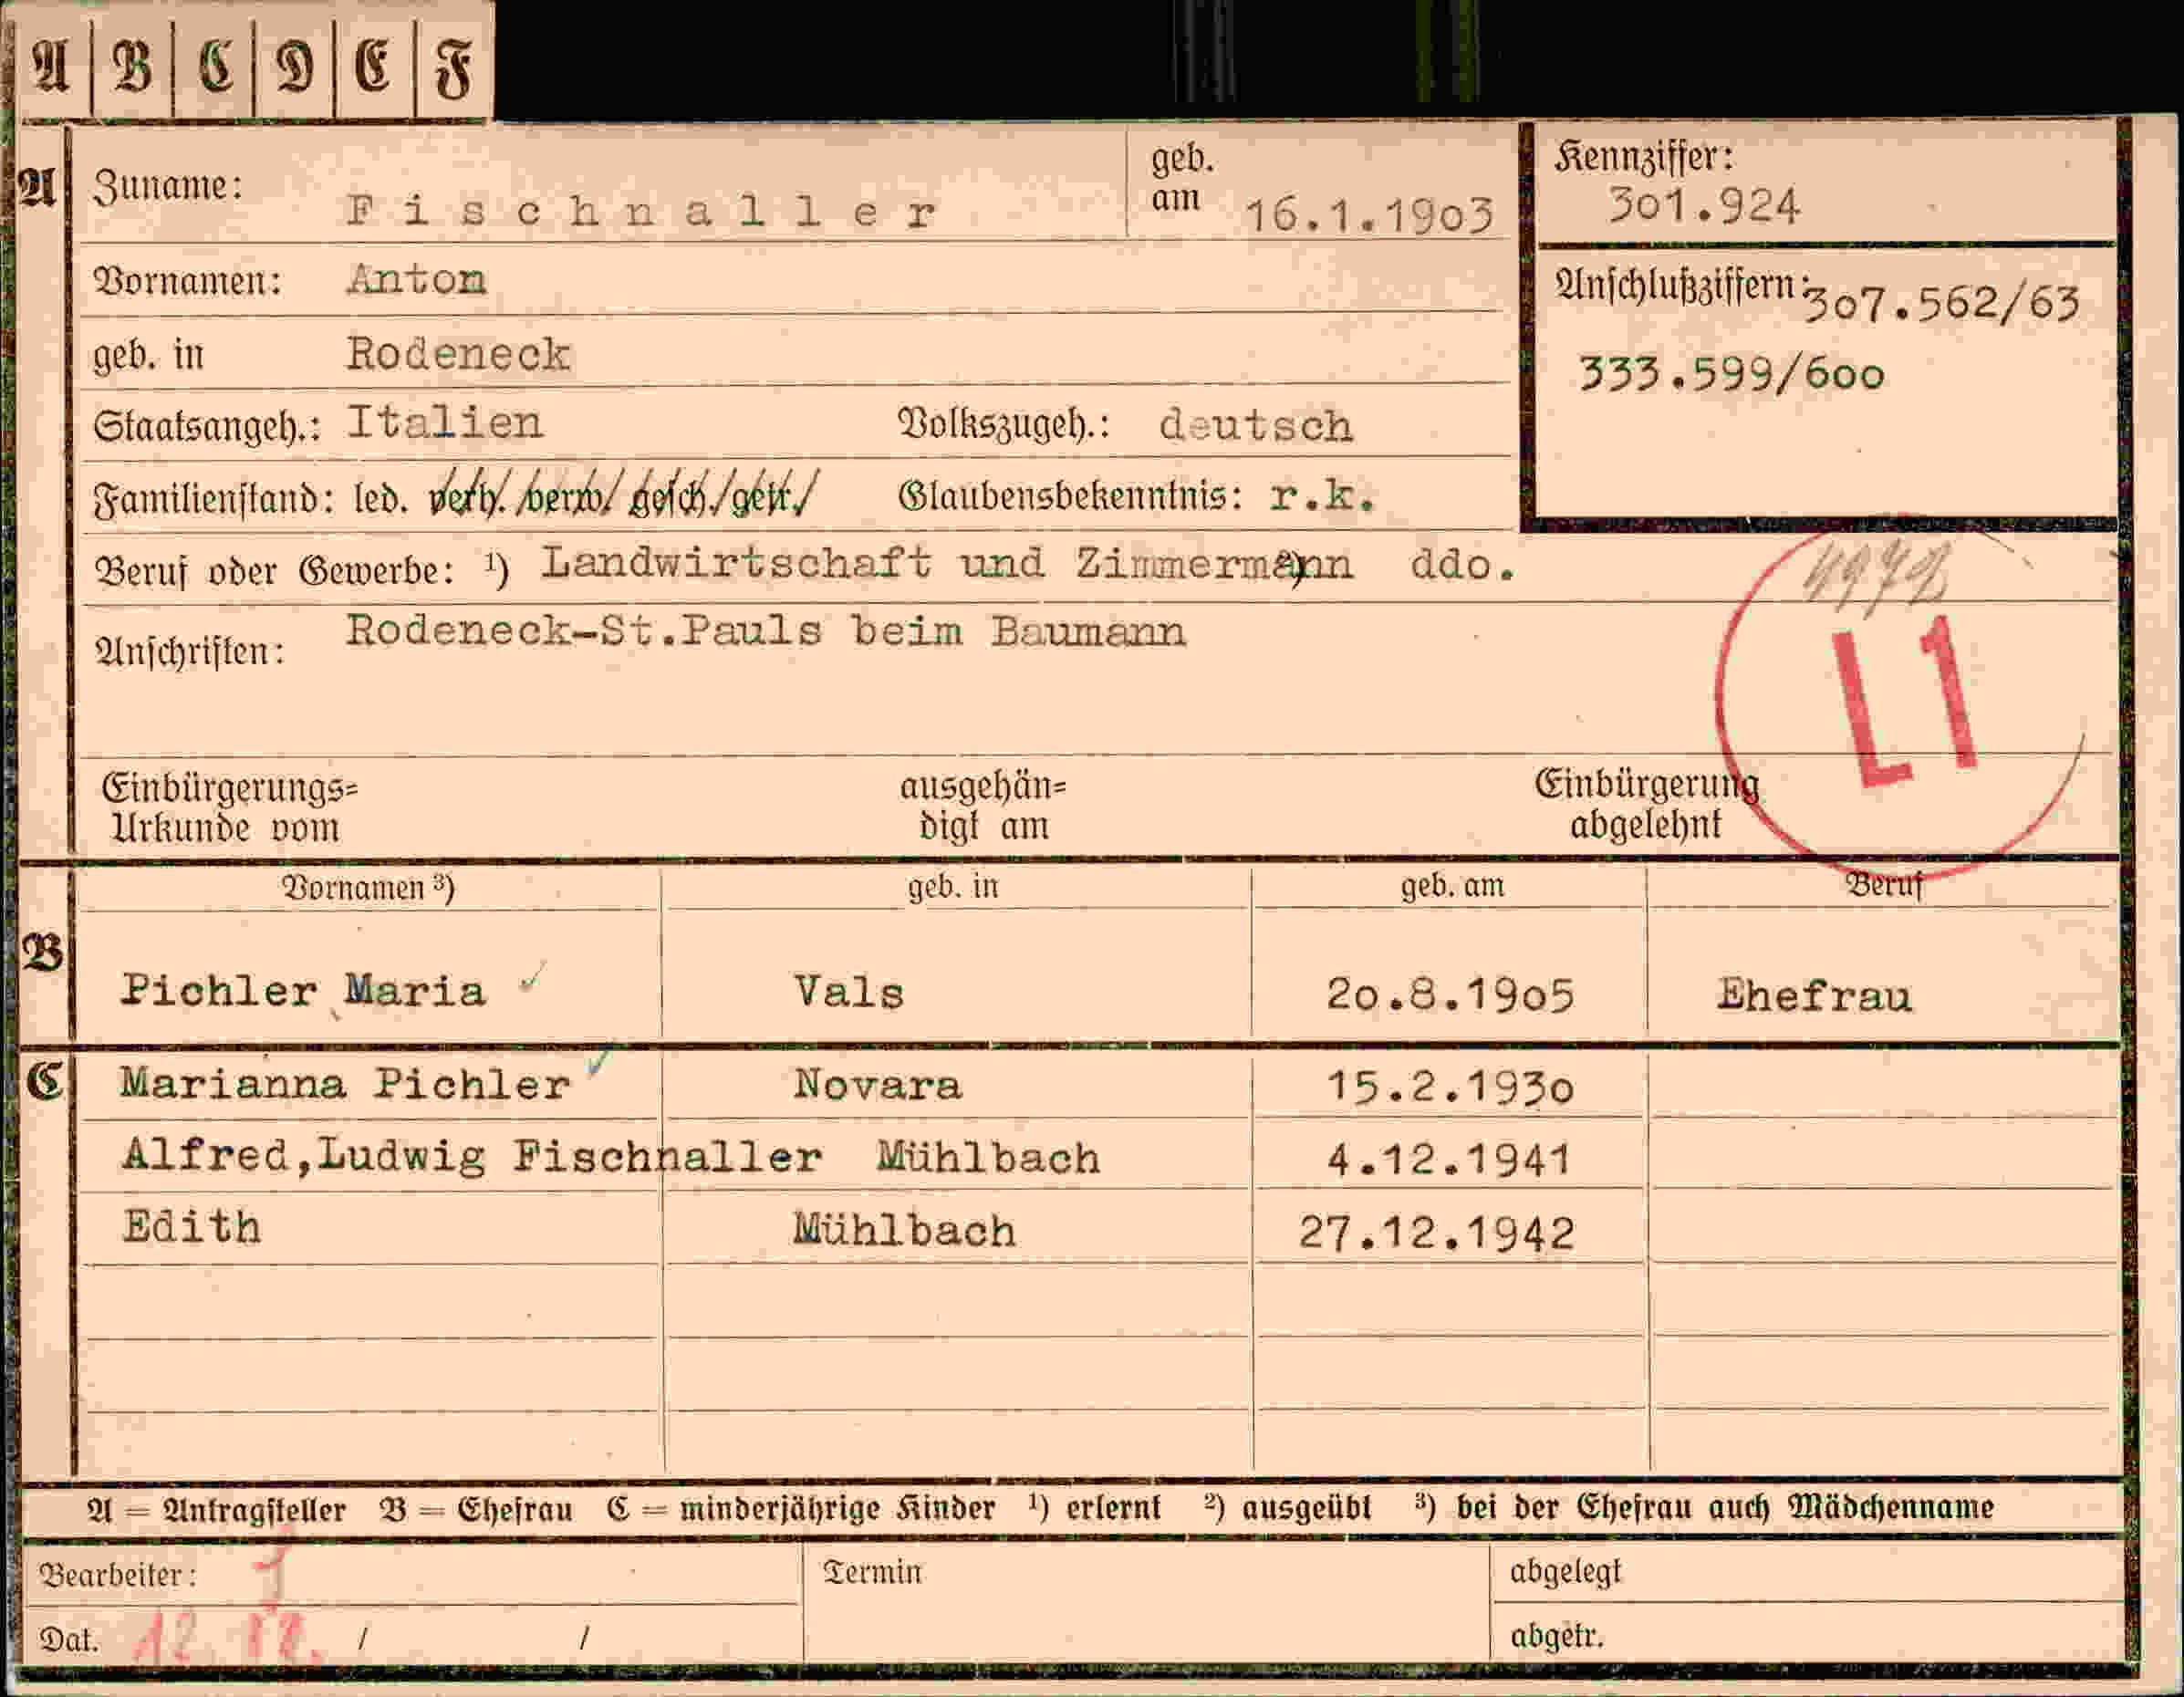 A B C D E F
A Zuname: Fischnaller geb. am 16.1.1903 Kennziffer: 301.924
Vornamen: Anton Anschlußziffern: 307.562/63
geb. in Rodeneck 333.599/600
Staatsangeh.: Italien Volkszugeh.: deutsch
Familienstand: led. verh. verw. gesch. getr. Glaubensbekenntnis: r.k.
Beruf oder Gewerbe: ¹) Landwirtschaft und Zimmermann ddo.
Anschriften: Rodeneck-St.Pauls beim Baumann
L1
Einbürgerungs= ausgehän= Einbürgerung
Urkunde vom digt am abgelehnt
Vornamen ³) geb. in geb. am Beruf
B Pichler Maria Vals 20.8.1905 Ehefrau
C Marianna Pichler Novara 15.2.1930
Alfred,Ludwig Fischnaller Mühlbach 4.12.1941
Edith Mühlbach 27.12.1942
A = Antragsteller B = Ehefrau C = minderjährige Kinder ¹) erlernt ²) ausgeübt ³) bei der Ehefrau auch Mädchenname
Bearbeiter: Termin abgelegt
Dat. 12. / / abgetr.